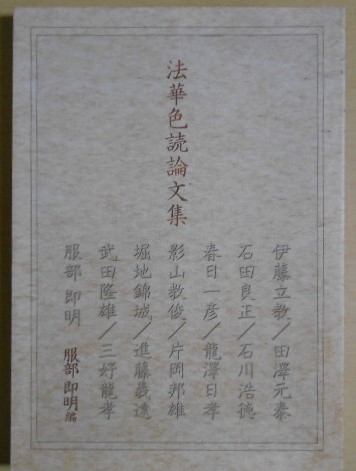 法華色読論文集
伊藤立教／田澤元泰
石田良正／石川浩徳
春日一彦／龍澤日孝
影山教俊／片岡邦雄
堀地錦城／進藤義遠
武田隆雄／三好龍孝
服部即明
服部即明編